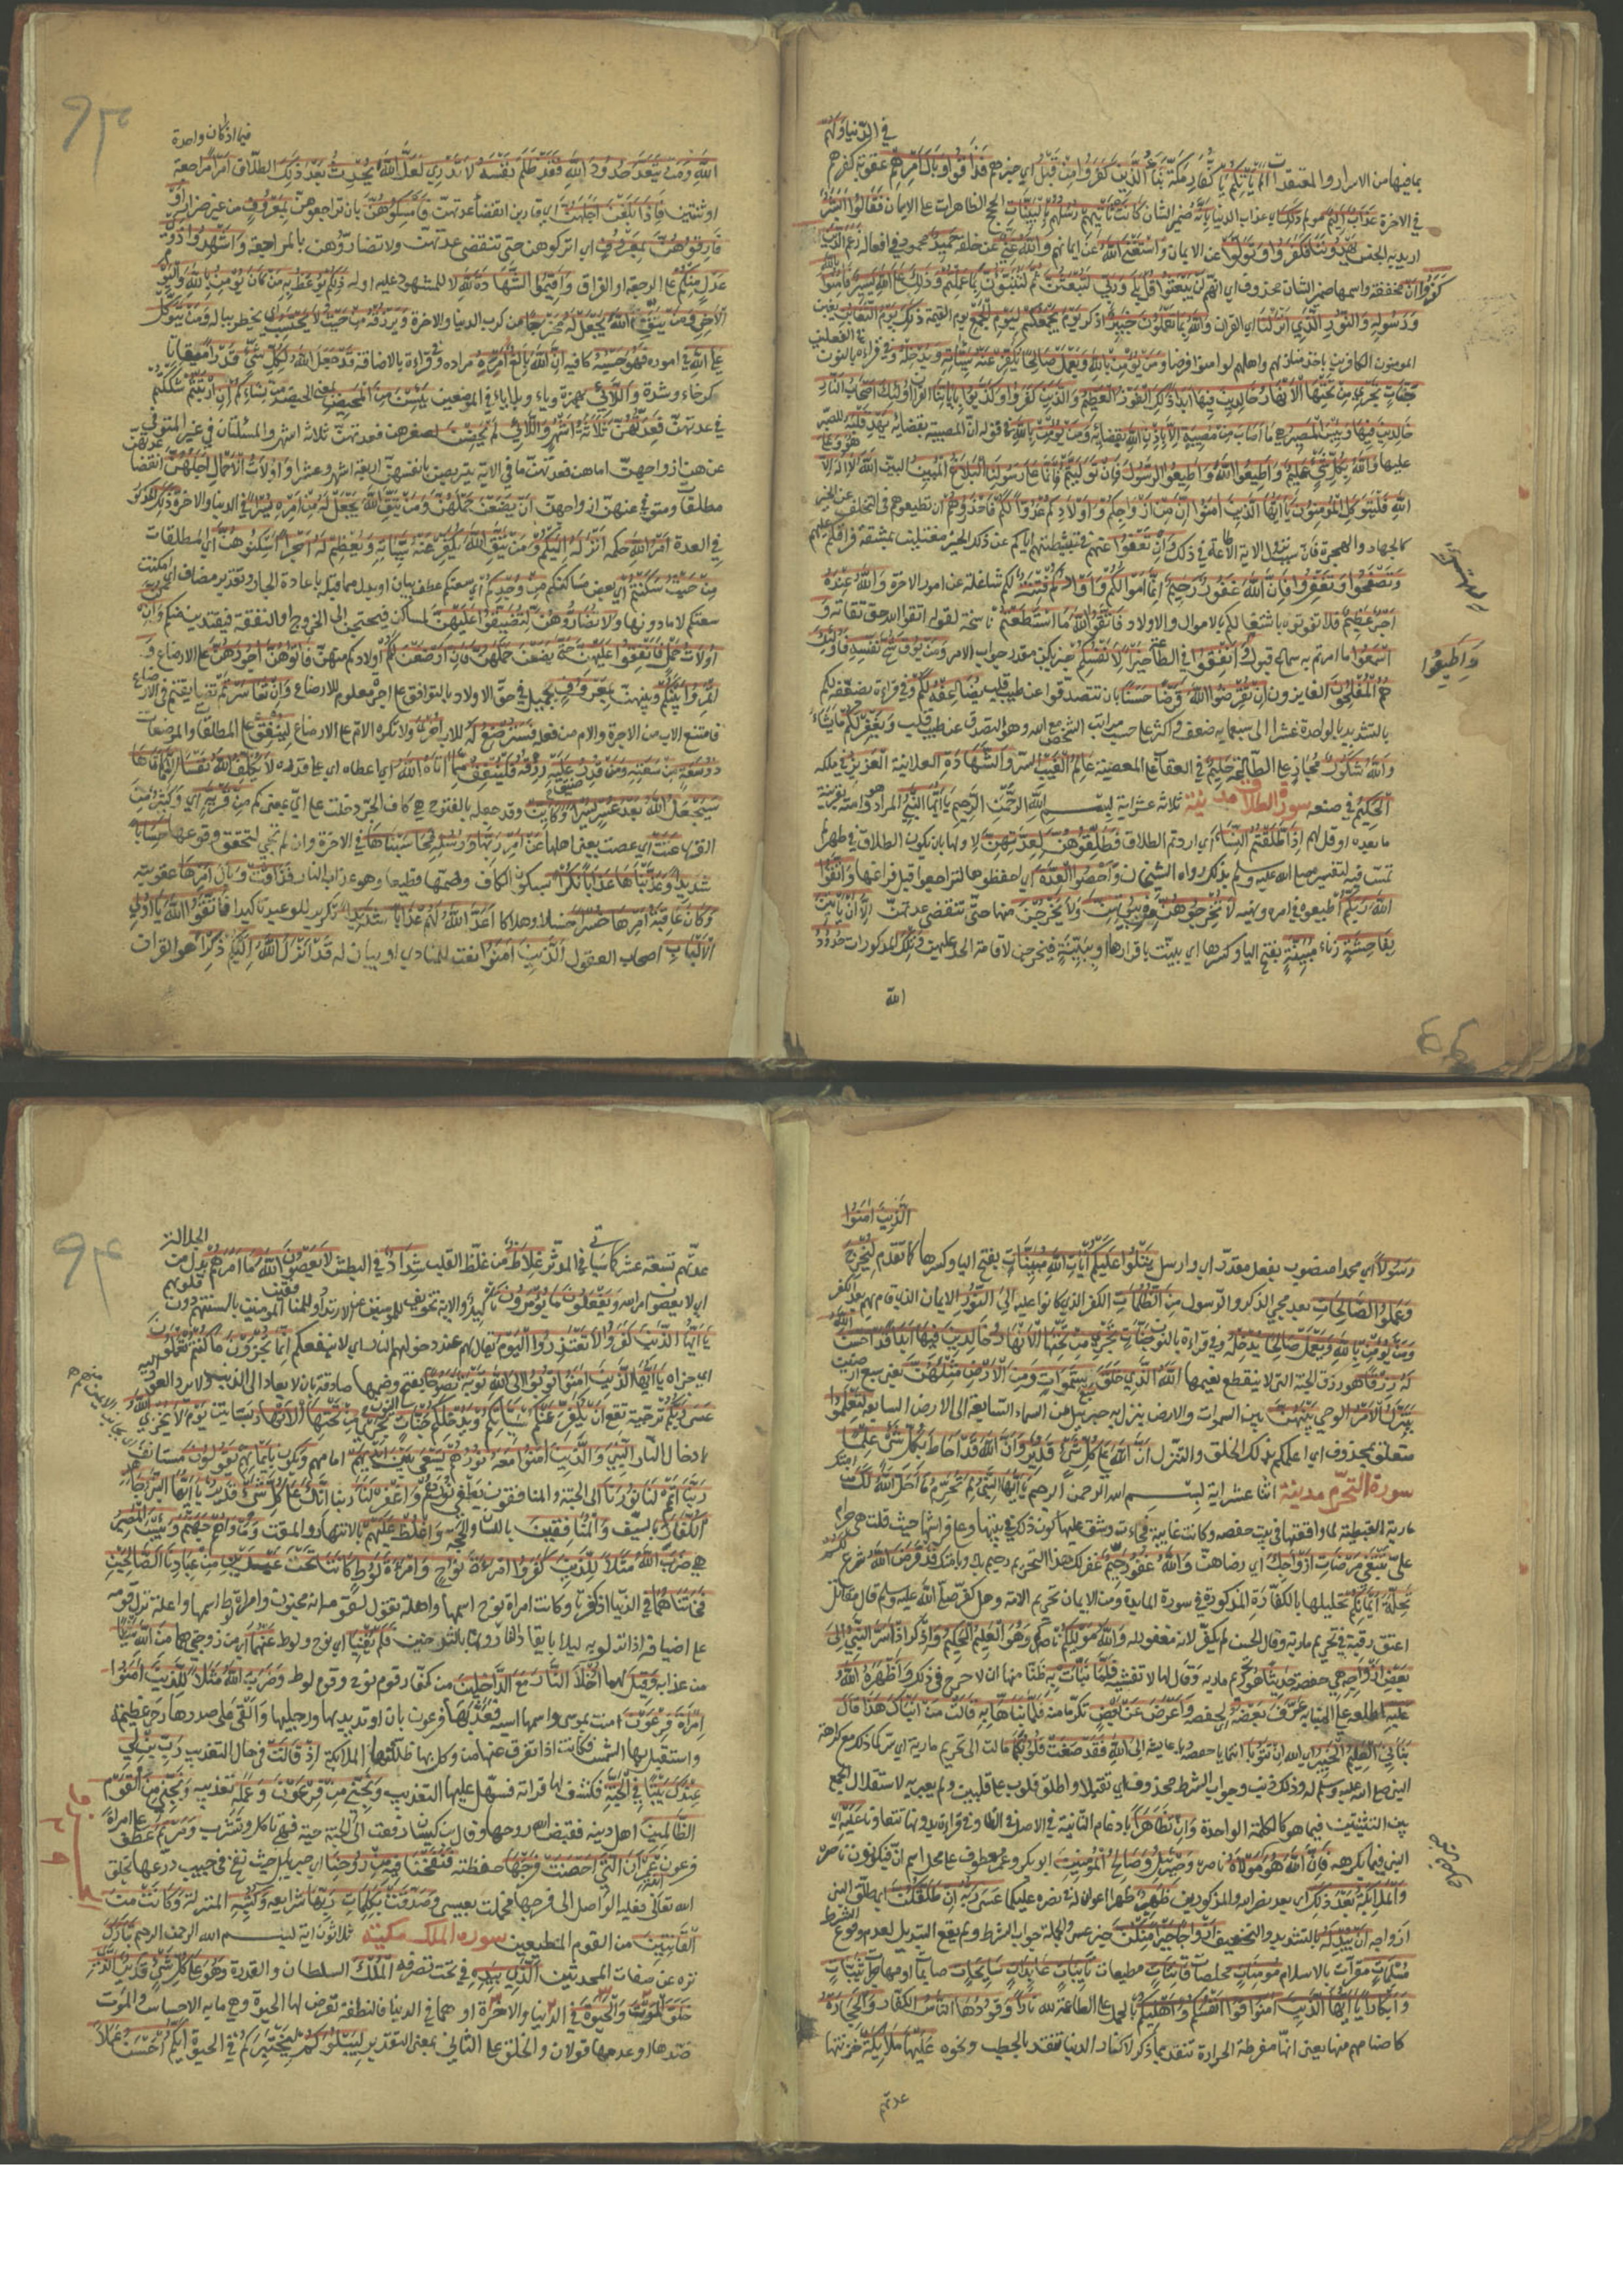 في الدنيا ولهم
بما فيها من الاسرار والمعتقدات الم يأتكم يا كفار مكة نبأ الذين كفروا من قبل اي خبرهم فذاقوا وبال امرهم عقوبة كفرهم
في الاخرة عذاب اليم مولم ذلك اي عذاب الدنيا بانه ضمير الشان كانت تأتيهم رسلهم بالبينات الحجج الظاهرات على الايمان فقالوا ابشر
اريد به الجنس يهدوننا فكفروا وتولوا عن الايمان واستغنى الله عن ايمانهم والله غني عن خلقه حميد محمود في افعاله زعم الذين
كفروا ان مخففة واسمها ضمير الشان محذوف اي انهم لن يبعثوا قل بلى وربي لتبعثن ثم لتنبؤن بما عملتم وذلك على الله يسير فامنوا بالله
ورسوله والنور الذي انزلنا اي القران والله بما تعملون خبير اذكر يوم يجمعكم ليوم الجمع يوم القيمة ذلك يوم التغابن يغبن
المومنون الكافرين باخذ منازلهم واهليهم لو امنوا في الجنة ومن يؤمن بالله ويعمل صالحا يكفر عنه سيئاته ويدخله وفي قراءة بالنون في الفعلين
جنات تجري من تحتها الانهار خالدين فيها ابدا ذلك الفوز العظيم والذين كفروا وكذبوا باياتنا القران اولئك اصحاب النار
خالدين فيها وبئس المصير هي ما اصاب من مصيبة الا باذن الله بقضائه ومن يؤمن بالله في قوله ان المصيبة بقضائه يهد قلبه للصبر
عليها والله بكل شيء عليم واطيعوا الله واطيعوا الرسول فان توليتم فانما على رسولنا البلاغ المبين البين الله لا اله الا هو وعلى
الله فليتوكل المؤمنون يا ايها الذين امنوا ان من ازواجكم واولادكم عدوا لكم فاحذروهم ان تطيعوهم في التخلف عن الخير
كالجهاد والهجرة فان سبب نزول الاية الاطاعة في ذلك وان تعفوا عنهم في تثبيطهم اياكم عن ذلك الخير معتلين بمشقة فراقكم عليهم
وتصفحوا وتغفروا فان الله غفور رحيم انما اموالكم واولادكم فتنة لكم شاغلة عن امور الاخرة والله عنده
اجر عظيم فلا تفوتوه باشتغالكم بالاموال والاولاد فاتقوا الله ما استطعتم ناسخة لقوله اتقوا الله حق تقاته و
اسمعوا ما امرتم به سماع قبول وانفقوا في الطاعة خيرا لانفسكم خبر يكن مقدر جواب الامر ومن يوق شح نفسه فاولئك
هم المفلحون الفايزون ان تقرضوا الله قرضا حسنا بان تتصدقوا عن طيب قلب يضاعفه لكم وفي قراءة يضعفه لكم
بالتشديد بالواحدة عشرا الى سبعماية ضعف واكثر على حسب مراتب الشخص مع الله وهو التصدق عن طيب قلب ويغفر لكم ما يشاء
والله شكور مجاز على الطاعة حليم في العقاب على المعصية عالم الغيب السر والشهادة العلانية العزيز في ملكه
الحكيم في صنعه سورة الطلاق مدنية ثلاثة عشر اية بسم الله الرحمن الرحيم يا ايها النبي المراد هو وامته بقرينة
ما بعده او قل لهم اذا طلقتم النساء اي اردتم الطلاق فطلقوهن لعدتهن لاولها بان يكون الطلاق في طهر لم
تمس فيه لتفسيره صلى الله عليه وسلم بذلك رواه الشيخان واحصوا العدة اي احفظوها لتراجعوا قبل فراغها واتقوا
الله ربكم اطيعوه في امره ونهيه لا تخرجوهن من بيوتهن ولا يخرجن منها حتى تنقضي عدتهن الا ان يأتين
بفاحشة زناء مبينة بفتح اليا وكسرها اي بينت باقرارها او ببينة فيخرجن لاقامة الحد عليهن وتلك المذكورات حدود
الله
واطيعوا
فيما اذا كان واحدة
الله ومن يتعد حدود الله فقد ظلم نفسه لا تدري لعل الله يحدث بعد ذلك الطلاق امرا مراجعة
او ثنتين فاذا بلغن اجلهن اي قاربن انقضاء عدتهن فامسكوهن بان تراجعوهن بمعروف من غير ضرار او
فارقوهن بمعروف اي اتركوهن حتى تنقضي عدتهن ولا تضاروهن بالمراجعة واشهدوا ذوي
عدل منكم على الرجعة او الفراق واقيموا الشهادة لله لا للمشهود عليه او له ذلكم يوعظ به من كان يؤمن بالله واليوم
الاخر ومن يتق الله يجعل له مخرجا من كرب الدنيا والاخرة ويرزقه من حيث لا يحتسب يخطر بباله ومن يتوكل
على الله في اموره فهو حسبه كافيه ان الله بالغ امره مراده وفي قراءة بالاضافة قد جعل الله لكل شيء قدرا ميقاتا
كرخاء وشدة واللائي بهمزة وياء وبلا ياء في الموضعين يئسن من المحيض بمعنى الحيض من نسائكم ان ارتبتم شككتم
في عدتهن فعدتهن ثلاثة اشهر واللائي لم يحضن لصغرهن فعدتهن ثلاثة اشهر والمسئلتان في غير المتوفى
عنهن ازواجهن اما هن فعدتهن ما في الاية يتربصن بانفسهن اربعة اشهر وعشرا واولات الاحمال اجلهن انقضا عدتهن
مطلقات او متوفى عنهن ازواجهن ان يضعن حملهن ومن يتق الله يجعل له من امره يسرا في الدنيا والاخرة ذلك المذكور
في العدة امر الله حكمه انزله اليكم ومن يتق الله يكفر عنه سيئاته ويعظم له اجرا اسكنوهن اي المطلقات
من حيث سكنتم اي بعض مساكنكم من وجدكم اي سعتكم عطف بيان او بدل مما قبله باعادة الجار وتقدير مضاف اي امكنة
سعتكم لا ما دونها ولا تضاروهن لتضيقوا عليهن المساكن فيحتجن الى الخروج او النفقة فيفتدين منكم وان كن
اولات حمل فانفقوا عليهن حتى يضعن حملهن فان ارضعن لكم اولادكم منهن فاتوهن اجورهن على الارضاع و
أتمروا بينكم وبينهن بمعروف بجميل في حق الاولاد بالتوافق على اجر معلوم للارضاع وان تعاسرتم تضايقتم في الارضاع
فامتنع الاب من الاجرة والام من فعله فسترضع له للاب اخرى ولا تكره الام على الارضاع لينفق على المطلقات والمرضعات
ذو سعة من سعته ومن قدر ضيق عليه رزقه فلينفق مما اتاه الله اي اعطاه اي على قدره لا يكلف الله نفسا الا ما اتاها
سيجعل الله بعد عسر يسرا وكاين هي كاف الجر دخلت على اي بمعنى كم من قرية اي وكثير من
القرى عتت اي عصت يعني اهلها عن امر ربها ورسله فحاسبناها في الاخرة وان لم تجيء لتحقق وقوعها حسابا
شديدا وعذبناها عذابا نكرا بسكون الكاف وضمها فظيعا وهو عذاب النار فذاقت وبال امرها عقوبته
وكان عاقبة امرها خسرا خسارا وهلاكا اعد الله لهم عذابا شديدا تكرير للوعيد تاكيدا فاتقوا الله يا اولي
الالباب اصحاب العقول الذين امنوا نعت للمنادي او بيان له قد انزل الله اليكم ذكرا هو القران
الذين امنوا
رسولا اي محمدا منصوب بفعل مقدر اي وارسل يتلوا عليكم آيات الله مبينات بفتح اليا وكسرها كما تقدم ليخرج
وعملوا الصالحات بعد مجيء الذكر والرسول من الظلمات الكفر الذي كانوا عليه الى النور الايمان الذي قام بهم بعد الكفر
ومن يؤمن بالله ويعمل صالحا يدخله وفي قراءة بالنون جنات تجري من تحتها الانهار خالدين فيها ابدا قد احسن الله
له رزقا هو رزق الجنة التي لا ينقطع نعيمها الله الذي خلق سبع سموات ومن الارض مثلهن يعني سبع ارضين
يتنزل الامر الوحي بينهن بين السموات والارض ينزل به جبريل من السماء السابعة الى الارض السابعة لتعلموا
متعلق بمحذوف اي اعلمكم بذلك الخلق والتنزل ان الله على كل شيء قدير وان الله قد احاط بكل شيء علما
سورة التحريم مدنية اثنا عشر اية بسم الله الرحمن الرحيم يا ايها النبي لم تحرم ما احل الله لك من امتك
مارية القبطية لما واقعها في بيت حفصة وكانت غايبة فجاءت وشق عليها كون ذلك في بيتها وعلى فراشها حيث قلت هي حرام
علي تبتغي مرضات ازواجك اي رضاهن والله غفور رحيم غفر لك هذا التحريم قد فرض الله شرع لكم
تحلة ايمانكم تحليلها بالكفارة المذكورة في سورة المايدة ومن الايمان تحريم الامة وهل كفر صلى الله عليه وسلم قال مقاتل
اعتق رقبة في تحريم مارية وقال الحسن لم يكفر لانه مغفور له والله موليكم ناصركم وهو العليم الحكيم واذكر اذ اسر النبي الى
بعض ازواجه هي حفصة حديثا هو تحريم مارية وقال لها لا تفشيه فلما نبأت به ظنا منها ان لا حرج في ذلك واظهره الله
عليه اطلعه على المنبأ به عرف بعضه لحفصة واعرض عن بعض تكرما منه فلما نبأها به قالت من انبأك هذا قال
نبأني العليم الخبير اي الله ان تتوبا اي حفصة وعايشة الى الله فقد صغت قلوبكما مالت الى تحريم مارية اي سركما ذلك مع كراهة
النبي صلى الله عليه وسلم له وذلك ذنب وجواب الشرط محذوف اي تقبلا واطلق قلوب على قلبين ولم يعبر به لاستثقال الجمع
بين التثنيتين فيما هو كالكلمة الواحدة وان تظاهرا بادغام التا الثانية في الاصل في الظا وفي قراءة بدونها تتعاونا عليه اي
النبي فيما يكرهه فان الله هو مولاه ناصره وجبريل وصالح المؤمنين ابو بكر وعمر معطوف على محل اسم ان فيكونون ناصريه
والملائكة بعد ذلك اي بعد نصر الله والمذكورين ظهير ظهرا اعوان له في نصره عليكما عسى ربه ان طلقكن اي طلق النبي
ازواجه ان يبدله بالتشديد والتخفيف ازواجا خيرا منكن خبر عسى والجملة جواب الشرط ولم يقع التبديل لعدم وقوع الشرط
مسلمات مقرات بالاسلام مؤمنات مخلصات قانتات مطيعات تايبات عابدات سايحات صايمات او مهاجرات ثيبات
وابكارا يا ايها الذين امنوا قوا انفسكم واهليكم بالحمل على الطاعة لله نارا وقودها الناس الكفار والحجارة
كاصنامهم منها يعني انها مفرطة الحرارة تتقد بما ذكر لا كنار الدنيا تتقد بالحطب ونحوه عليها ملائكة خزنتها
عدتهم
عدتهم تسعة عشر كما سياتي في المدثر غلاظ من غلظ القلب شداد في البطش لا يعصون الله ما امرهم بدل من الجلالة
اي لا يعصون امر الله ويفعلون ما يؤمرون تاكيد والاية تخويف للمومنين عن الارتداد وللمنافقين المومنين بالسنتهم دون قلوبهم
يا ايها الذين كفروا لا تعتذروا اليوم يقال لهم عند دخولهم النار اي لانه لا ينفعكم انما تجزون ما كنتم تعملون
اي جزاءه يا ايها الذين امنوا توبوا الى الله توبة نصوحا بفتح النون وضمها صادقة بان لا يعاد الى الذنب ولا يراد العود اليه
عسى ربكم ترجية تقع ان يكفر عنكم سيئاتكم ويدخلكم جنات تجري من تحتها الانهار بساتين يوم لا يخزي الله
بادخال النار النبي والذين امنوا معه نورهم يسعى بين ايديهم امامهم ويكون بايمانهم يقولون مستانف
ربنا اتمم لنا نورنا الى الجنة والمنافقون يطفى نورهم واغفر لنا ربنا انك على كل شيء قدير يا ايها النبي جاهد
الكفار بالسيف والمنافقين باللسان والحجة واغلظ عليهم بالانتهار والمقت ومأواهم جهنم وبئس المصير
هي ضرب الله مثلا للذين كفروا امرأة نوح وامرأة لوط كانتا تحت عبدين من عبادنا الصالحين
فخانتاهما في الدين اذ كفرتا وكانت امرأة نوح اسمها واهلة تقول لقومه انه مجنون وامرأة لوط اسمها واعلة تدل قومه
على اضيافه اذا نزلوا به ليلا بايقاد النار ونهارا بالتدخين فلم يغنيا اي نوح ولوط عنهما من الله شيئا
من عذابه وقيل لهما ادخلا النار مع الداخلين من كفار قوم نوح وقوم لوط وضرب الله مثلا للذين امنوا
امرأة فرعون امنت بموسى واسمها اسية فعذبها فرعون بان اوتد يديها ورجليها والقى على صدرها رحى عظيمة
واستقبل بها الشمس فكانت اذا تفرق عنها من وكل بها ظللتها الملائكة اذ قالت في حال التعذيب رب ابن لي
عندك بيتا في الجنة فكشف لها فراته فسهل عليها التعذيب ونجني من فرعون وعمله تعذيبه ونجني من القوم
الظالمين اهل دينه فقبض الله روحها وقال ابن كيسان رفعت الى الجنة حية فهي تاكل وتشرب ومريم عطف على امرأة
فرعون ابنت عمران التي احصنت فرجها حفظته فنفخنا فيه من روحنا اي جبريل حيث نفخ في جيب درعها بخلق
الله تعالى فعله الواصل الى فرجها فحملت بعيسى وصدقت بكلمات ربها شرايعه وكتبه المنزلة وكانت من
القانتين من القوم المطيعين سورة الملك مكية ثلاثون اية بسم الله الرحمن الرحيم تبارك
تنزه عن صفات المحدثين الذي بيده في تحت تصرفه الملك السلطان والقدرة وهو على كل شيء قدير الذي
خلق الموت والحيوة في الدنيا والاخرة او هما في الدنيا فالنطفة تعرض لها الحيوة وهي ما به الاحساس والموت
ضدها او عدمها قولان والخلق على الثاني بمعنى التقدير ليبلوكم ليختبركم في الحيوة ايكم احسن عملا